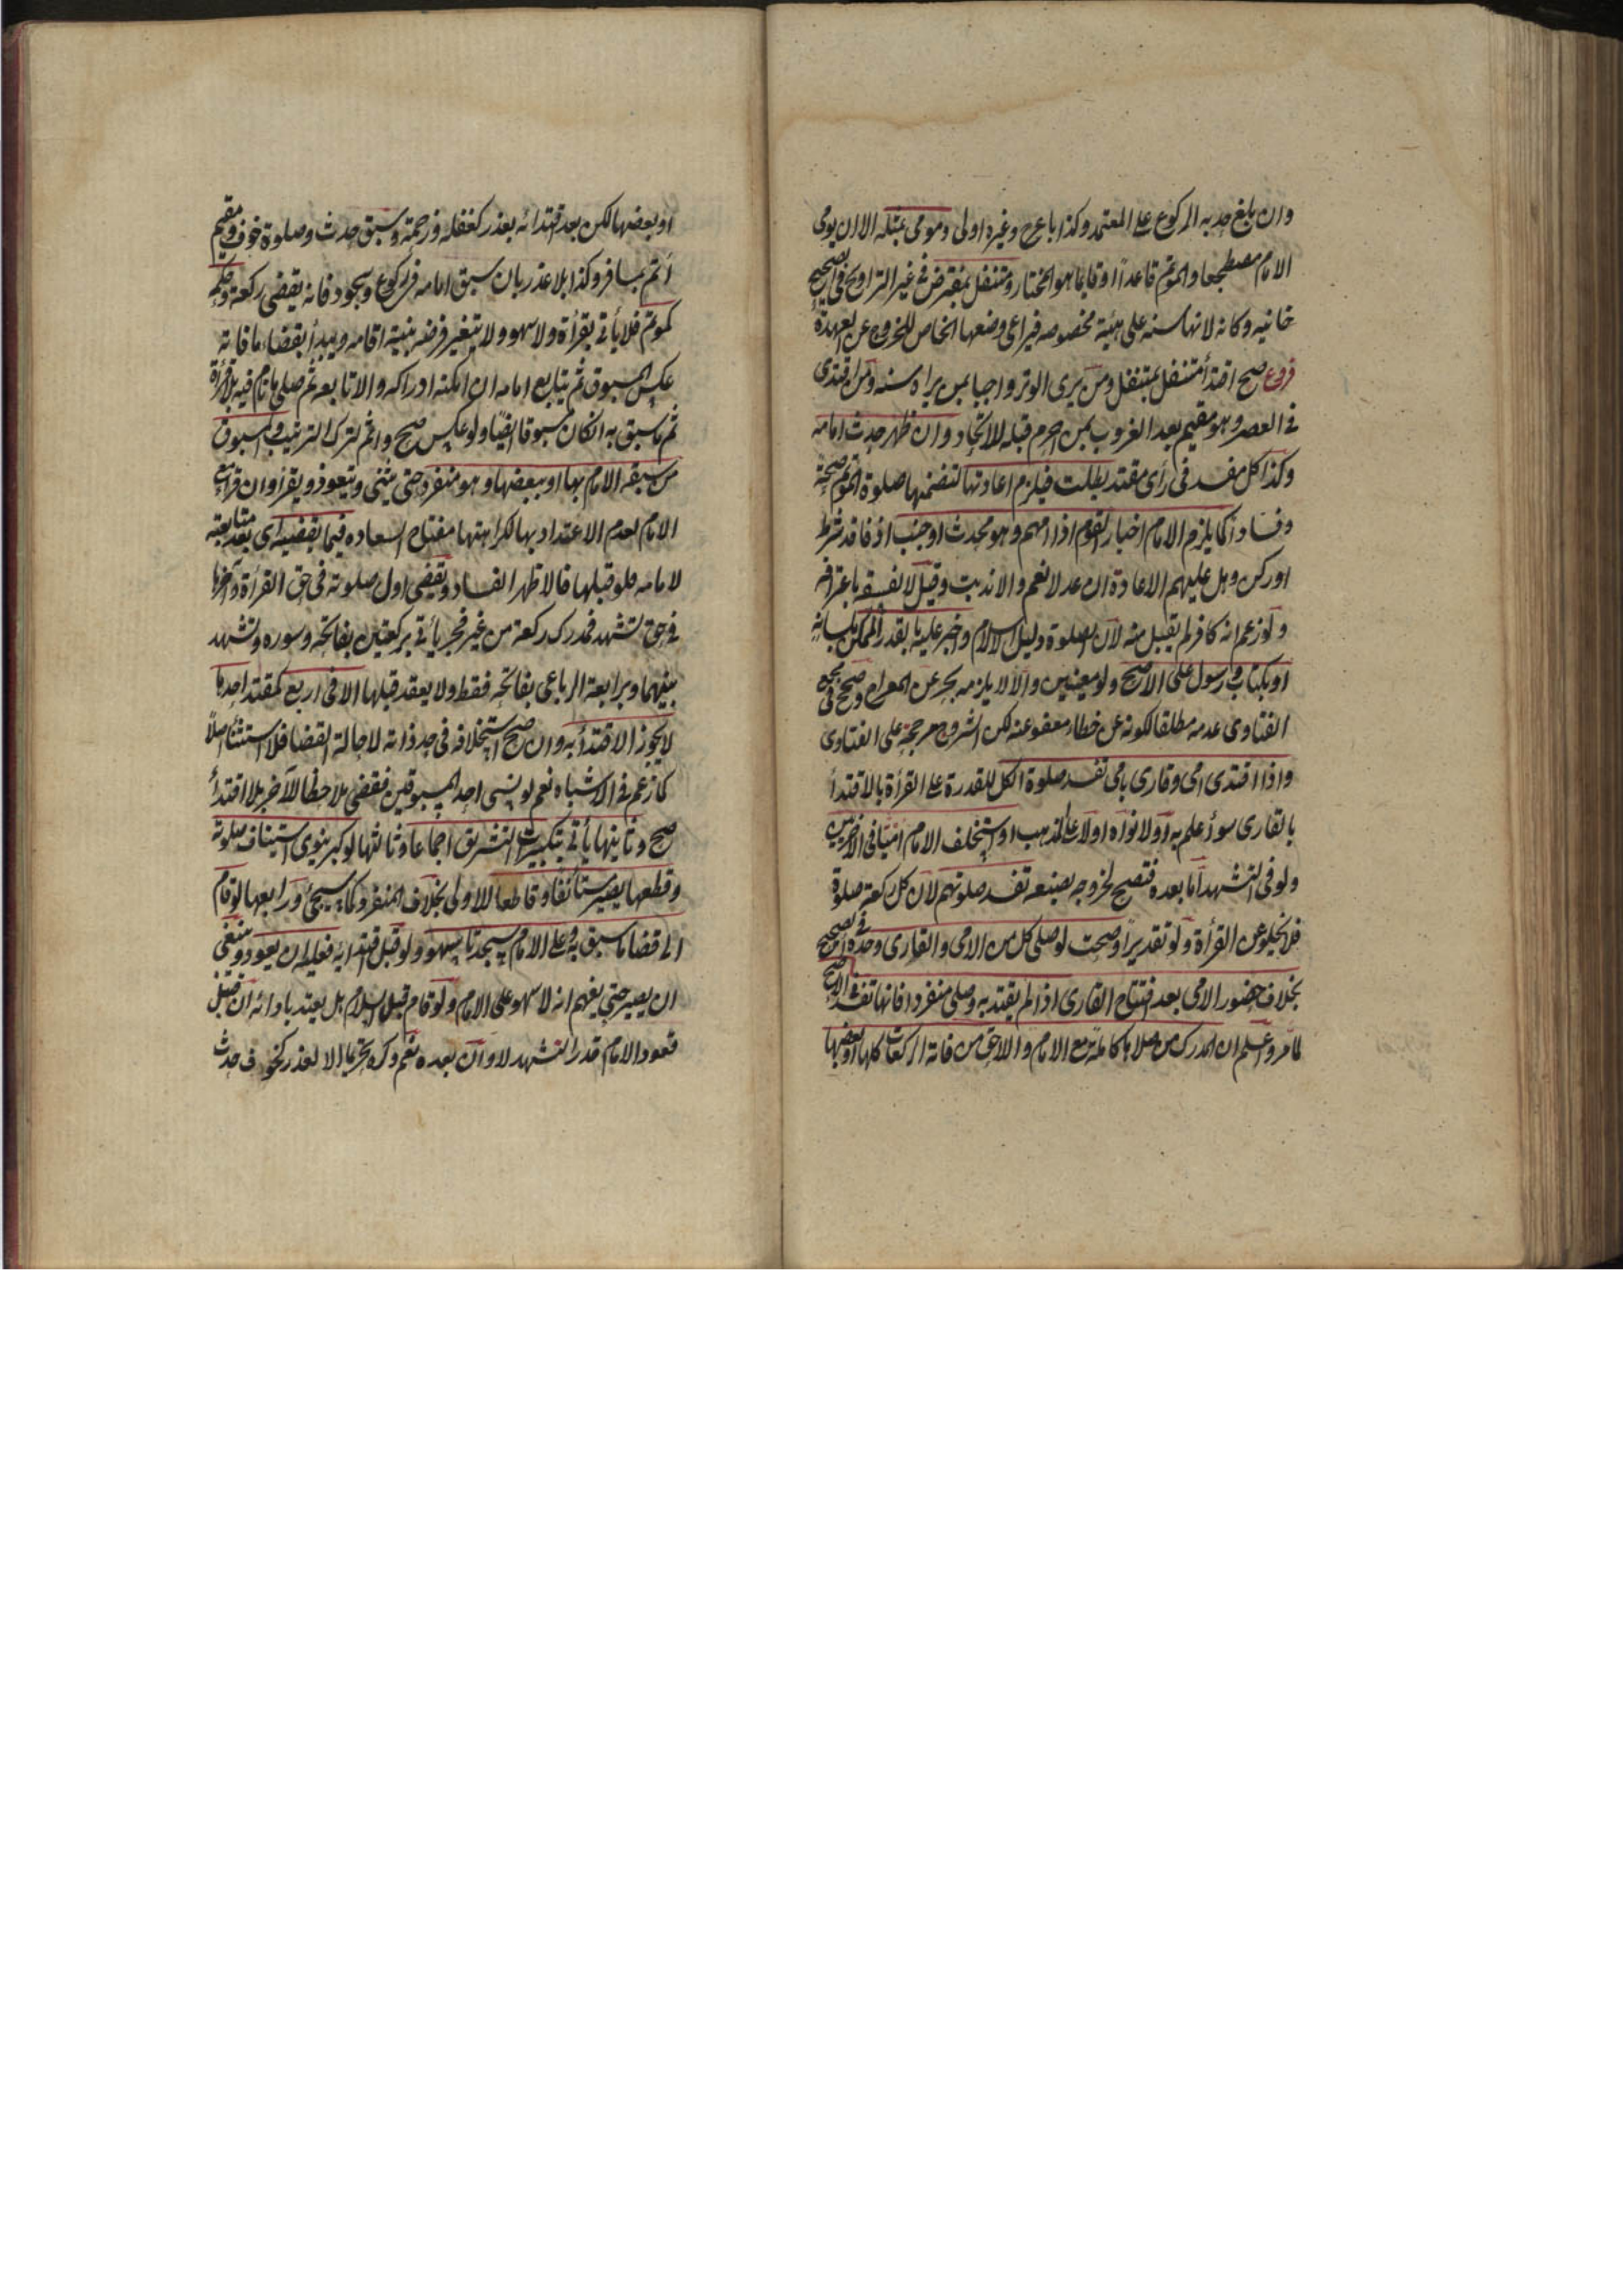 وان بلغ حدبه الركوع على المعتمد وكذا باعرج وغيره اولى ومومى بمثله الا ان يومى
الامام مضطجعا والمؤتم قاعدًا او قايما هو المختار ومتنفل بمفترض في غير التراويح في الصحيح
خانيه وكانه لانها سنه على هيئة مخصوصه فيراعى وضعها الخاص للخروج عن العهدة
فروع صح اقتدأ متنفل بمتنفل ومن يرى الوتر واجبا بمن يراه سنه ومن اقتدى
في العصر وهو مقيم بعد الغروب بمن احرم قبله للاتحاد وان ظهر حدث امامه
وكذا كل مفسد في رأى مقتد بطلت فيلزم اعادتها لتضمنها صلوة المؤتم صحة
وفسادًا كما يلزم الامام اخبار القوم اذا امهم وهو محدث او جنب او فاقد شرط
او ركن وهل عليهم الاعادة ان عدلا نعم والا ندبت وقيل لا لفسقه باعترافه
ولو زعم انه كافر لم يقبل منه لان الصلوة دليل الاسلام واجبر عليه بالقدر الممكن بلسانه
او بكتاب او رسول على الاصح ولو معينين والا لا يلزمه بحر عن المعراج وصحح في مجمع
الفتاوى عدمه مطلقا لكونه عن خطاء معفو عنه لكن الشروح مرجحة على الفتاوى
واذا اقتدى امى وقارى بامى تفسد صلوة الكل للقدرة على القرأة بالاقتدأ
بالقارى سوأ علم به اولا نواه اولا على المذهب او استخلف الامام اميا في الاخريين
ولو في التشهد اما بعده فتصح لخروجه بصنعه تفسد صلوتهم لان كل ركعة صلوة
فلا تخلو عن القرأة ولو تقديرًا وصحت لو صلى كل من الامى والقارى وحده في الصحيح
بخلاف حضور الامى بعد افتتاح القارى اذا لم يقتد به وصلى منفردا فانها تفسد في الاصح
لما مر واعلم ان المدرك من صلاها كاملة مع الامام واللاحق من فاته الركعات كلها او بعضها
او بعضها لكن بعد اقتدائه بعذر كغفله وزحمة وسبق حدث وصلوة خوف ومقيم
أتم بمسافر وكذا بلا عذر بان سبق امامه في ركوع وسجود فانه يقضى ركعة وحكمه
كمؤتم فلا يأتى بقرأة ولا سهو ولا يتغير فرضه بنية اقامه ويبدأ بقضاء ما فاته
عكس المسبوق ثم يتابع امامه ان امكنه ادراكه والا تابعه ثم صلى ما نام فيه بلا قرأة
ثم ما سبق به ان كان مسبوقا ايضًا ولو عكس صح واثم لترك الترتيب والمسبوق
من سبقه الامام بها او ببعضها وهو منفرد حتى يثنى ويتعوذ ويقرأ وان قرأ مع
الامام لعدم الاعتداد بها لكراهتها مفتاح السعاده فيما يقضيه اى بعد متابعته
لامامه فلو قبلها فالاظهر الفساد ويقضى اول صلوته في حق القرأة وآخرها
في حق تشهد فمدرك ركعة من غير فجر يأتى بركعتين بفاتحه وسوره وتشهد
بينهما وبرابعة الرباعى بفاتحه فقط ولا يقعد قبلها الا في اربع كمقتد احدها
لا يجوز الاقتدأ به وان صح استخلافه في حد ذاته لا حالة القضا فلا استثنأ اصلًا
كما زعم في الاشباه نعم لو نسى احد المسبوقين فقضى ملاحظا للآخر بلا اقتدأ
صح وثانيها يأتى بتكبيرات التشريق اجماعا وثالثها لو كبر ينوى استيناف صلوته
وقطعها يصير مستأنفا وقاطعا للاولى بخلاف المنفرد كما سيجئ ورابعها لو قام
الى قضا ما سبق به وعلى الامام سجدتا سهو ولو قبل اقتدايه فعليه ان يعود وينبغى
ان يصبر حتى يفهم انه لا سهو على الامام ولو قام قبل السلام هل يعتد بادائه ان قبل
قعود الامام قدر التشهد لا وان بعده نعم وكره تحريما الا لعذر كخوف حدث